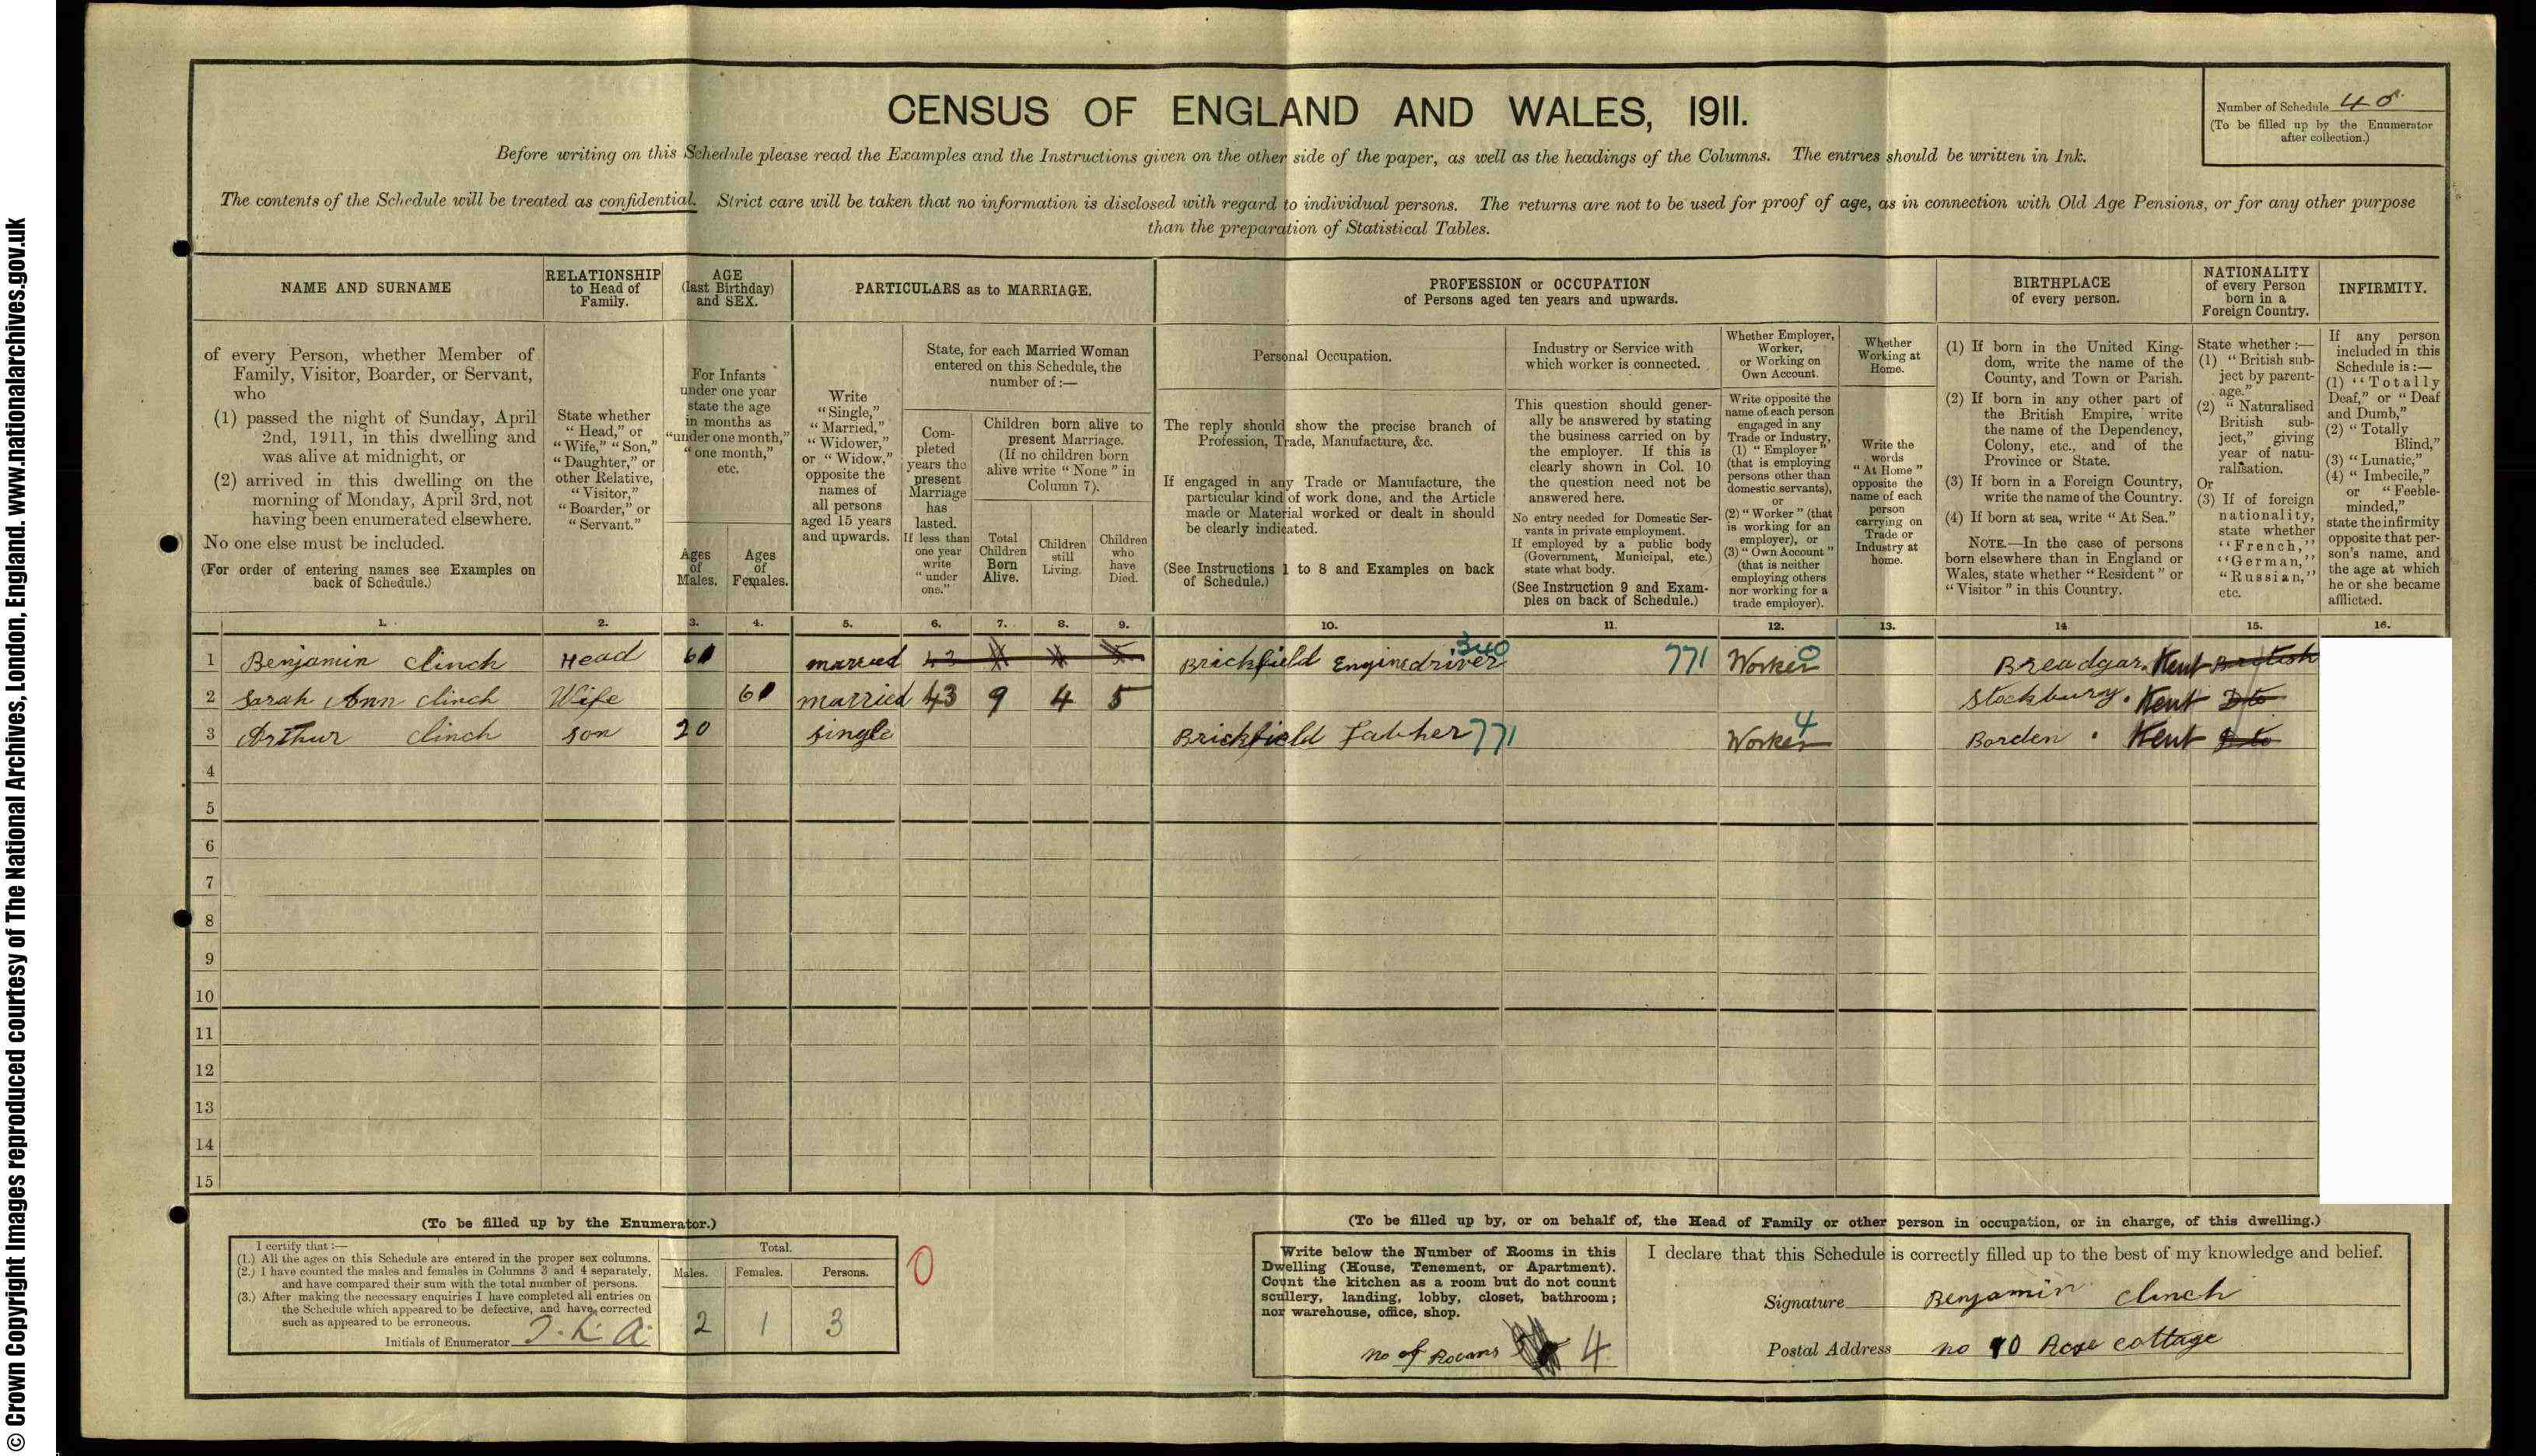 CENSUS OF ENGLAND AND WALES, 1911.
Number of Schedule
(To be filled up by the Enumerator
after collection.)
Before writing on this Schedule please read the Examples and the Instructions given on the other side of the paper, as well as the headings of the Columns. The entries should be written in Ink.
The contents of the Schedule will be treated as confidential. Strict care will be taken that no information is disclosed with regard to individual persons. The returns are not to be used for proof of age, as in connection with Old Age Pensions, or for any other purpose
than the preparation of Statistical Tables.
NAME AND SURNAME
of every Person, whether Member of
Family, Visitor, Boarder, or Servant,
who
(1) passed the night of Sunday, April
2nd, 1911, in this dwelling and
was alive at midnight, or
(2) arrived in this dwelling on the
morning of Monday, April 3rd, not
having been enumerated elsewhere.
No one else must be included.
(For order of entering names see Examples on
back of Schedule.)
RELATIONSHIP
to Head of
Family.
State whether
"Head," or
"Wife," "Son,"
"Daughter," or
other Relative,
"Visitor,"
"Boarder," or
"Servant."
AGE
(last Birthday)
and SEX.
For Infants
under one year
state the age
in months as
"under one month,"
"one month,"
etc.
Ages
of
Males.
Ages
of
Females.
PARTICULARS as to MARRIAGE.
Write
"Single,"
"Married,"
"Widower,"
or "Widow,"
opposite the
names of
all persons
aged 15 years
and upwards.
State, for each Married Woman
entered on this Schedule, the
number of :—
Com-
pleted
years the
present
Marriage
has
lasted.
If less than
one year
write
"under
one."
Children born alive to
present Marriage.
(If no children born
alive write "None" in
Column 7).
Total
Children
Born
Alive.
Children
still
Living.
Children
who
have
Died.
PROFESSION or OCCUPATION
of Persons aged ten years and upwards.
Personal Occupation.
The reply should show the precise branch of
Profession, Trade, Manufacture, &c.
If engaged in any Trade or Manufacture, the
particular kind of work done, and the Article
made or Material worked or dealt in should
be clearly indicated.
(See Instructions 1 to 8 and Examples on back
of Schedule.)
Industry or Service with
which worker is connected.
This question should gener-
ally be answered by stating
the business carried on by
the employer. If this is
clearly shown in Col. 10
the question need not be
answered here.
No entry needed for Domestic Ser-
vants in private employment.
If employed by a public body
(Government, Municipal, etc.)
state what body.
(See Instruction 9 and Exam-
ples on back of Schedule.)
Whether Employer,
Worker,
or Working on
Own Account.
Write opposite the
name of each person
engaged in any
Trade or Industry,
(1) "Employer"
(that is employing
persons other than
domestic servants),
or
(2) "Worker" (that
is working for an
employer), or
(3) "Own Account"
(that is neither
employing others
nor working for a
trade employer).
Whether
Working at
Home.
Write the
words
"At Home"
opposite the
name of each
person
carrying on
Trade or
Industry at
home.
BIRTHPLACE
of every person.
(1) If born in the United King-
dom, write the name of the
County, and Town or Parish.
(2) If born in any other part of
the British Empire, write
the name of the Dependency,
Colony, etc., and of the
Province or State.
(3) If born in a Foreign Country,
write the name of the Country.
(4) If born at sea, write "At Sea."
NOTE.—In the case of persons
born elsewhere than in England or
Wales, state whether "Resident" or
"Visitor" in this Country.
NATIONALITY
of every Person
born in a
Foreign Country.
State whether :—
(1) "British sub-
ject by parent-
age."
(2) "Naturalised
British sub-
ject," giving
year of natu-
ralisation.
Or
(3) If of foreign
nationality,
state whether
"French,"
"German,"
"Russian,"
etc.
INFIRMITY.
If any person
included in this
Schedule is :—
(1) "Totally
Deaf," or "Deaf
and Dumb,"
(2) "Totally
Blind,"
(3) "Lunatic,"
(4) "Imbecile,"
or "Feeble-
minded,"
state the infirmity
opposite that per-
son's name, and
the age at which
he or she became
afflicted.
1. 2. 3. 4. 5. 6. 7. 8. 9. 10. 11. 12. 13. 14. 15. 16.
1 Benjamin Clinch Head 61 married 43 Brickfield Enginedriver 340 771 Worker 0 Breadgar. Kent British
2 Sarah Ann Clinch Wife 61 married 43 9 4 5 Stockbury. Kent Dto
3 Arthur Clinch Son 20 Single Brickfield 771 Worker 4 Borden. Kent Dto
4
5
6
7
8
9
10
11
12
13
14
15
(To be filled up by the Enumerator.)
I certify that :—
(1.) All the ages on this Schedule are entered in the proper sex columns.
(2.) I have counted the males and females in Columns 3 and 4 separately,
and have compared their sum with the total number of persons.
(3.) After making the necessary enquiries I have completed all entries on
the Schedule which appeared to be defective, and have corrected
such as appeared to be erroneous.
Initials of Enumerator
Total.
Males. Females. Persons.
2 1 3
0
(To be filled up by, or on behalf of, the Head of Family or other person in occupation, or in charge, of this dwelling.)
Write below the Number of Rooms in this
Dwelling (House, Tenement, or Apartment).
Count the kitchen as a room but do not count
scullery, landing, lobby, closet, bathroom;
nor warehouse, office, shop.
no of Rooms 4
I declare that this Schedule is correctly filled up to the best of my knowledge and belief.
Signature Benjamin Clinch
Postal Address no 10 Rose cottage
© Crown Copyright Images reproduced courtesy of The National Archives, London, England. www.nationalarchives.gov.uk